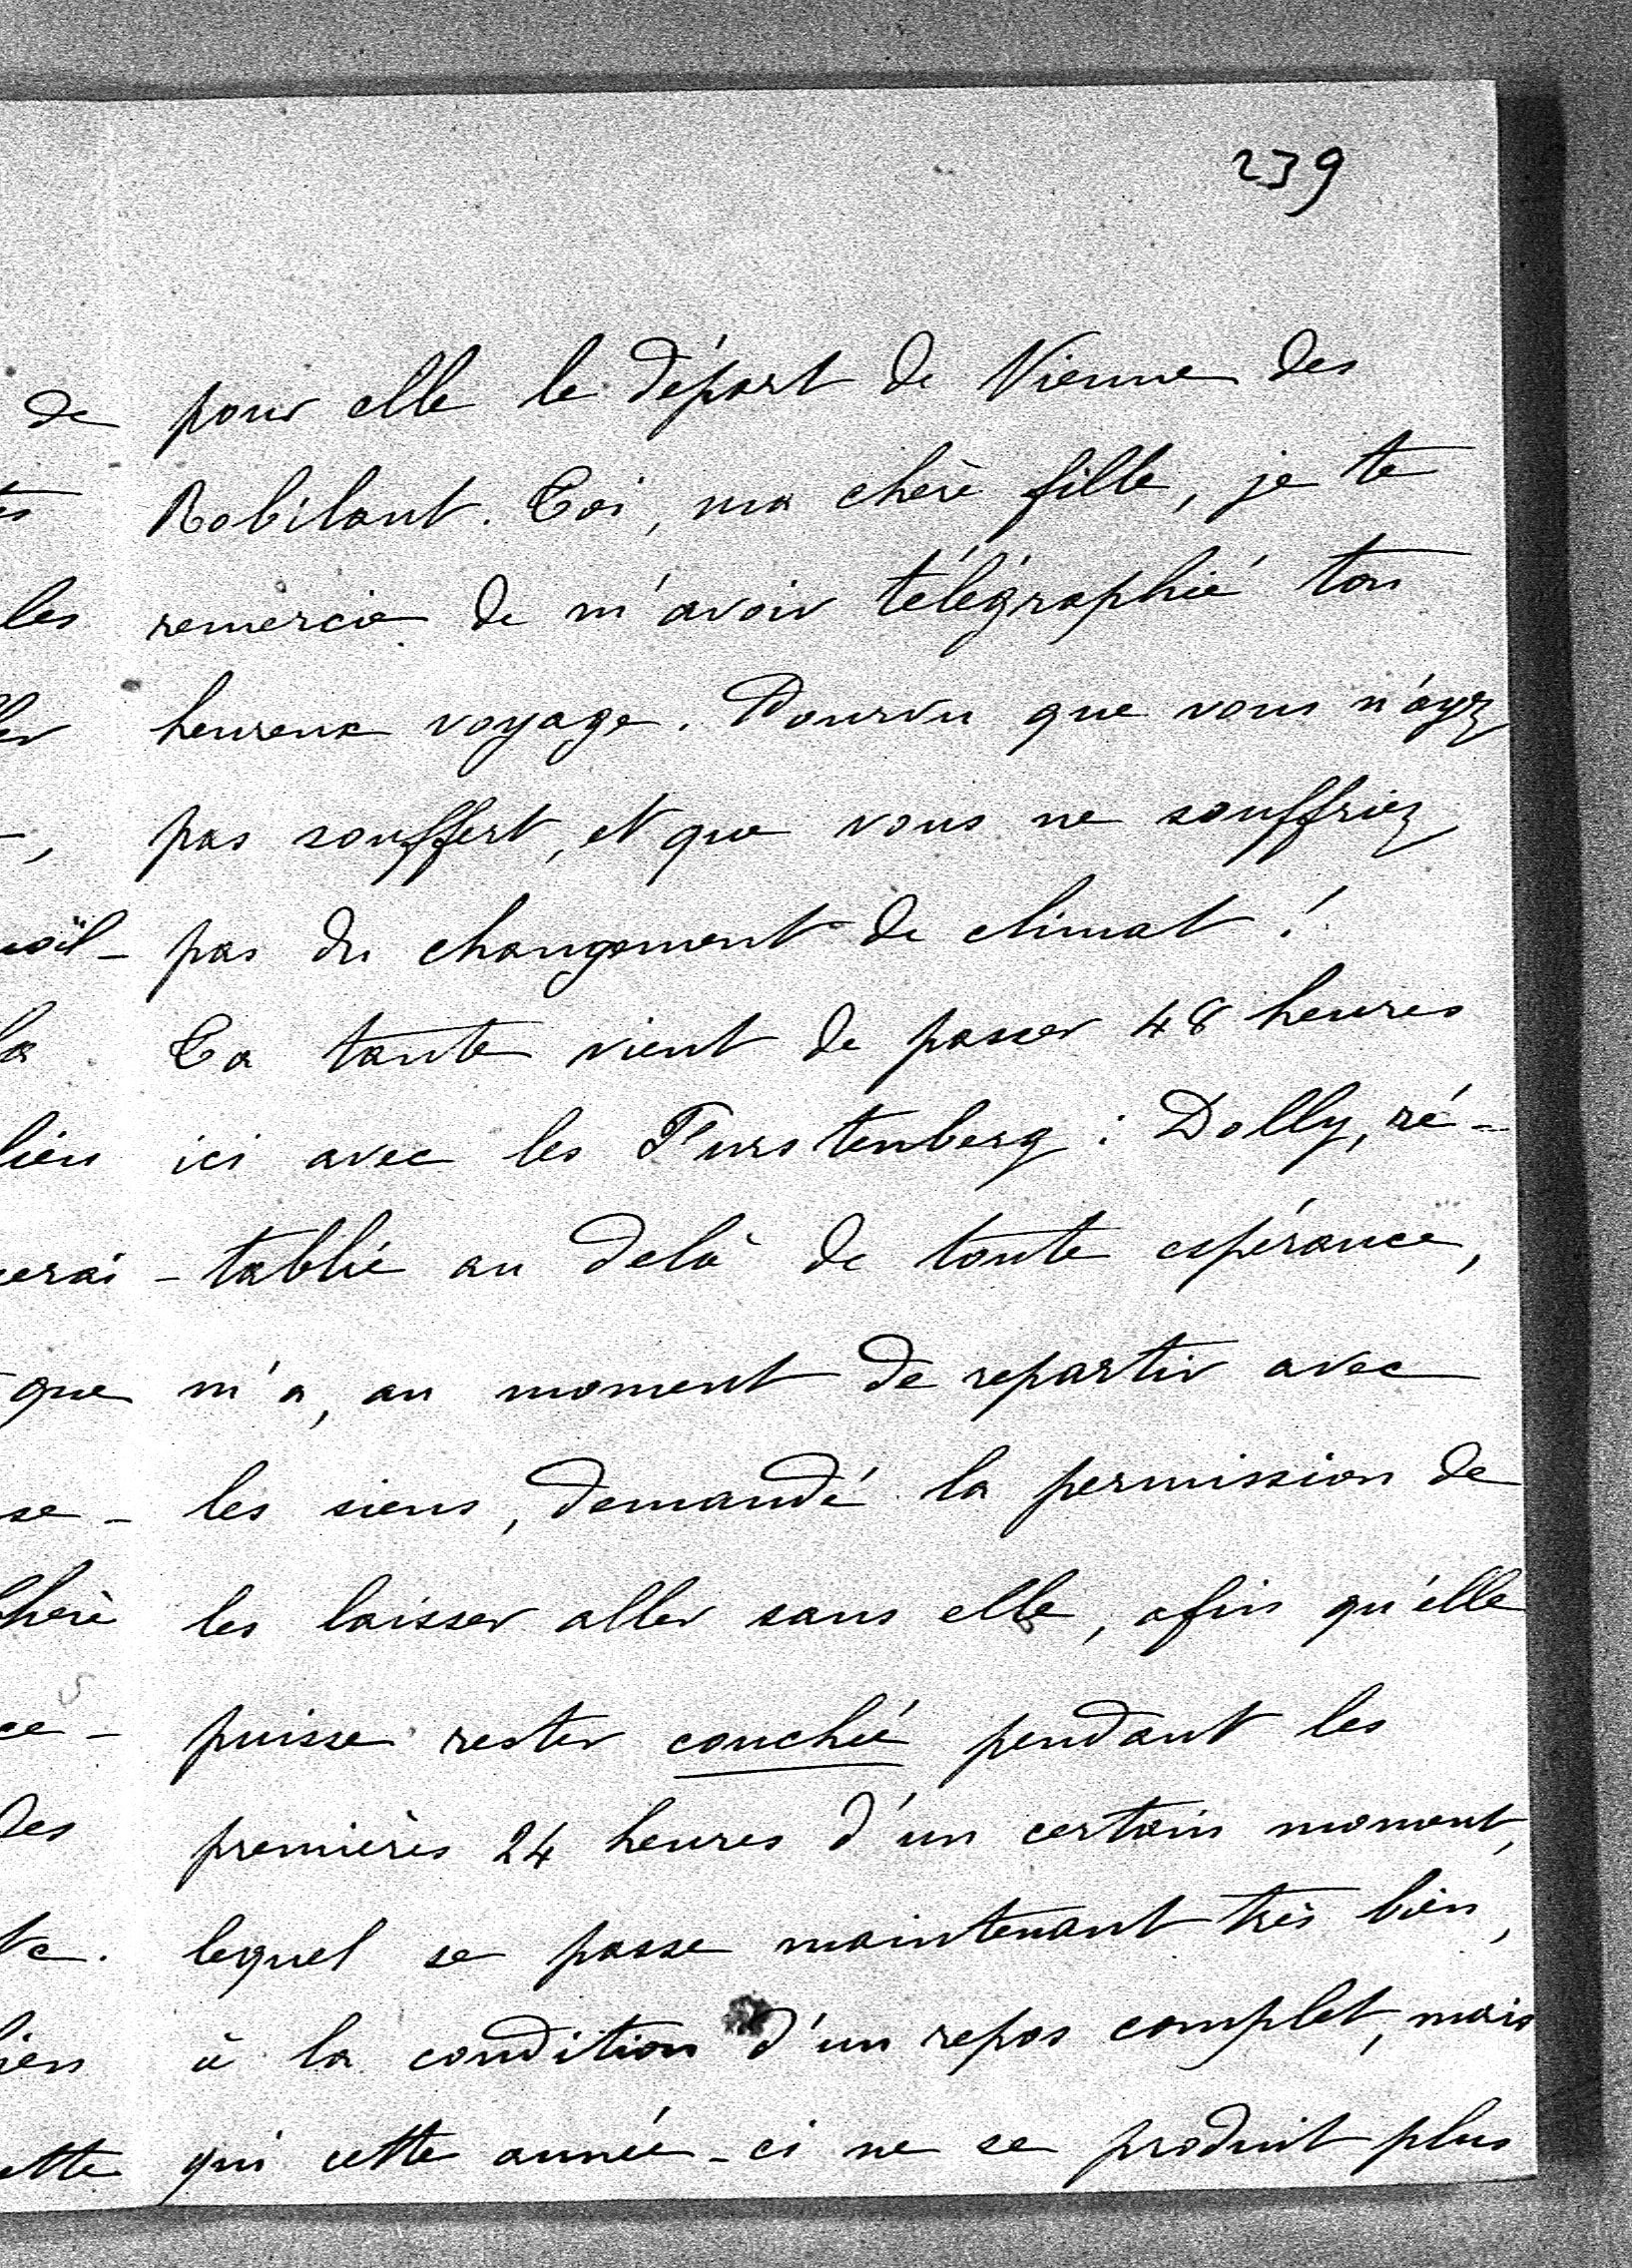 239
pour elle le départ de Vienne des
Robilant. Toi, ma chère fille, je te
remercie de m'avoir télégraphié ton
heureux voyage. Pourvu que vous n'ayez
pas souffert, et que vous ne souffriez
pas du changement de climat !
Ta tante vient de passer 48 heures
ici avec les Furstenberg : Dolly, ré-
-tablie au delà de toute espérance,
m'a, au moment de repartir avec
les siens, demandé la permission de
les laisser aller sans elle, afin qu'elle
puisse rester couchée pendant les
premières 24 heures d'un certain moment,
lequel se passe maintenant très bien,
à la condition d'un repos complet, mais
qui cette année-ci ne se produit plus